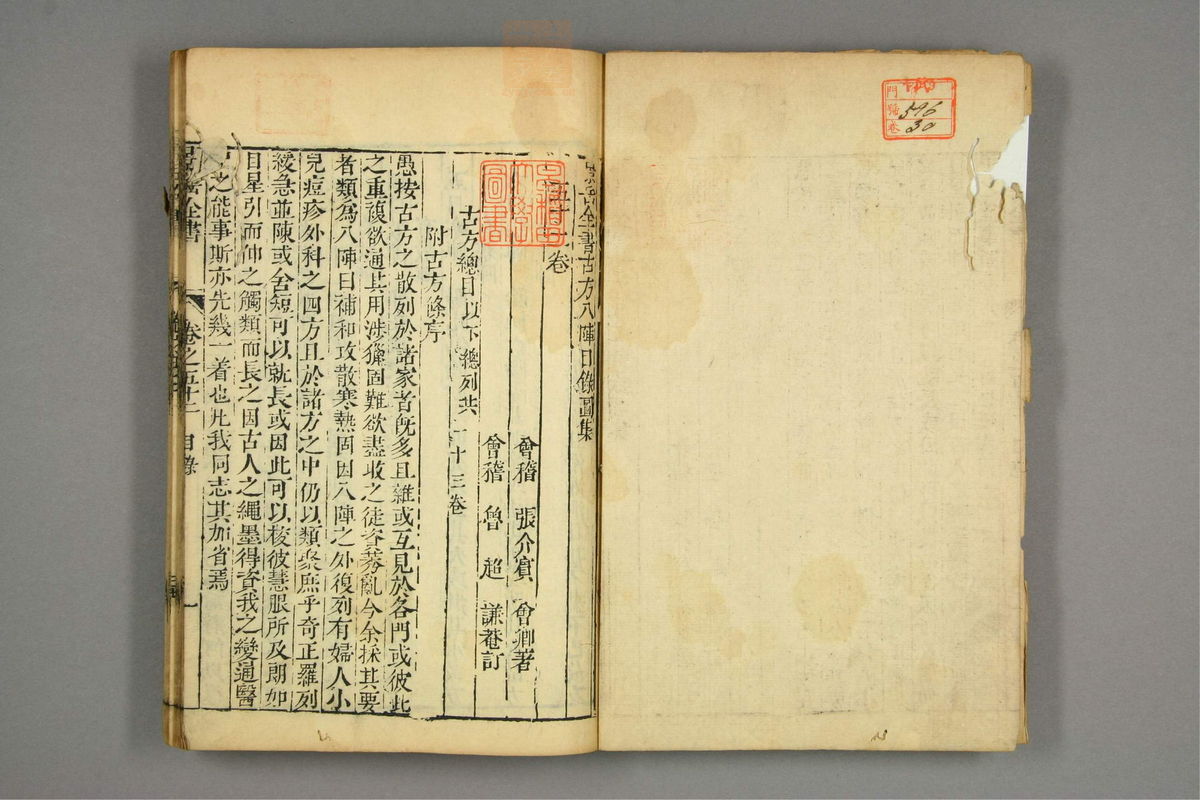 門
號 596
卷 30
景岳全書古方八陣目錄圖集
五十二卷
會稽 張介賓 會卿著
會稽 魯超 謙菴訂
古方總目以下總列共一十三卷
附古方條序
愚按古方之散列於諸家者旣多且雜或互見於各門或彼此
之重複欲通其用涉獵固難欲盡收之徒資莠亂今余採其要
者類爲八陣曰補和攻散寒熱固因八陣之外復列有婦人小
兒痘疹外科之四方且於諸方之中仍以類聚庶乎奇正羅列
緩急並陳或舍短可以就長或因此可以校彼慧眼所及朗如
日星引而伸之觸類而長之因古人之繩墨得資我之變通醫
之能事斯亦先幾一着也凡我同志其加省焉
景岳全書 卷之五十二 目錄 一
圖書